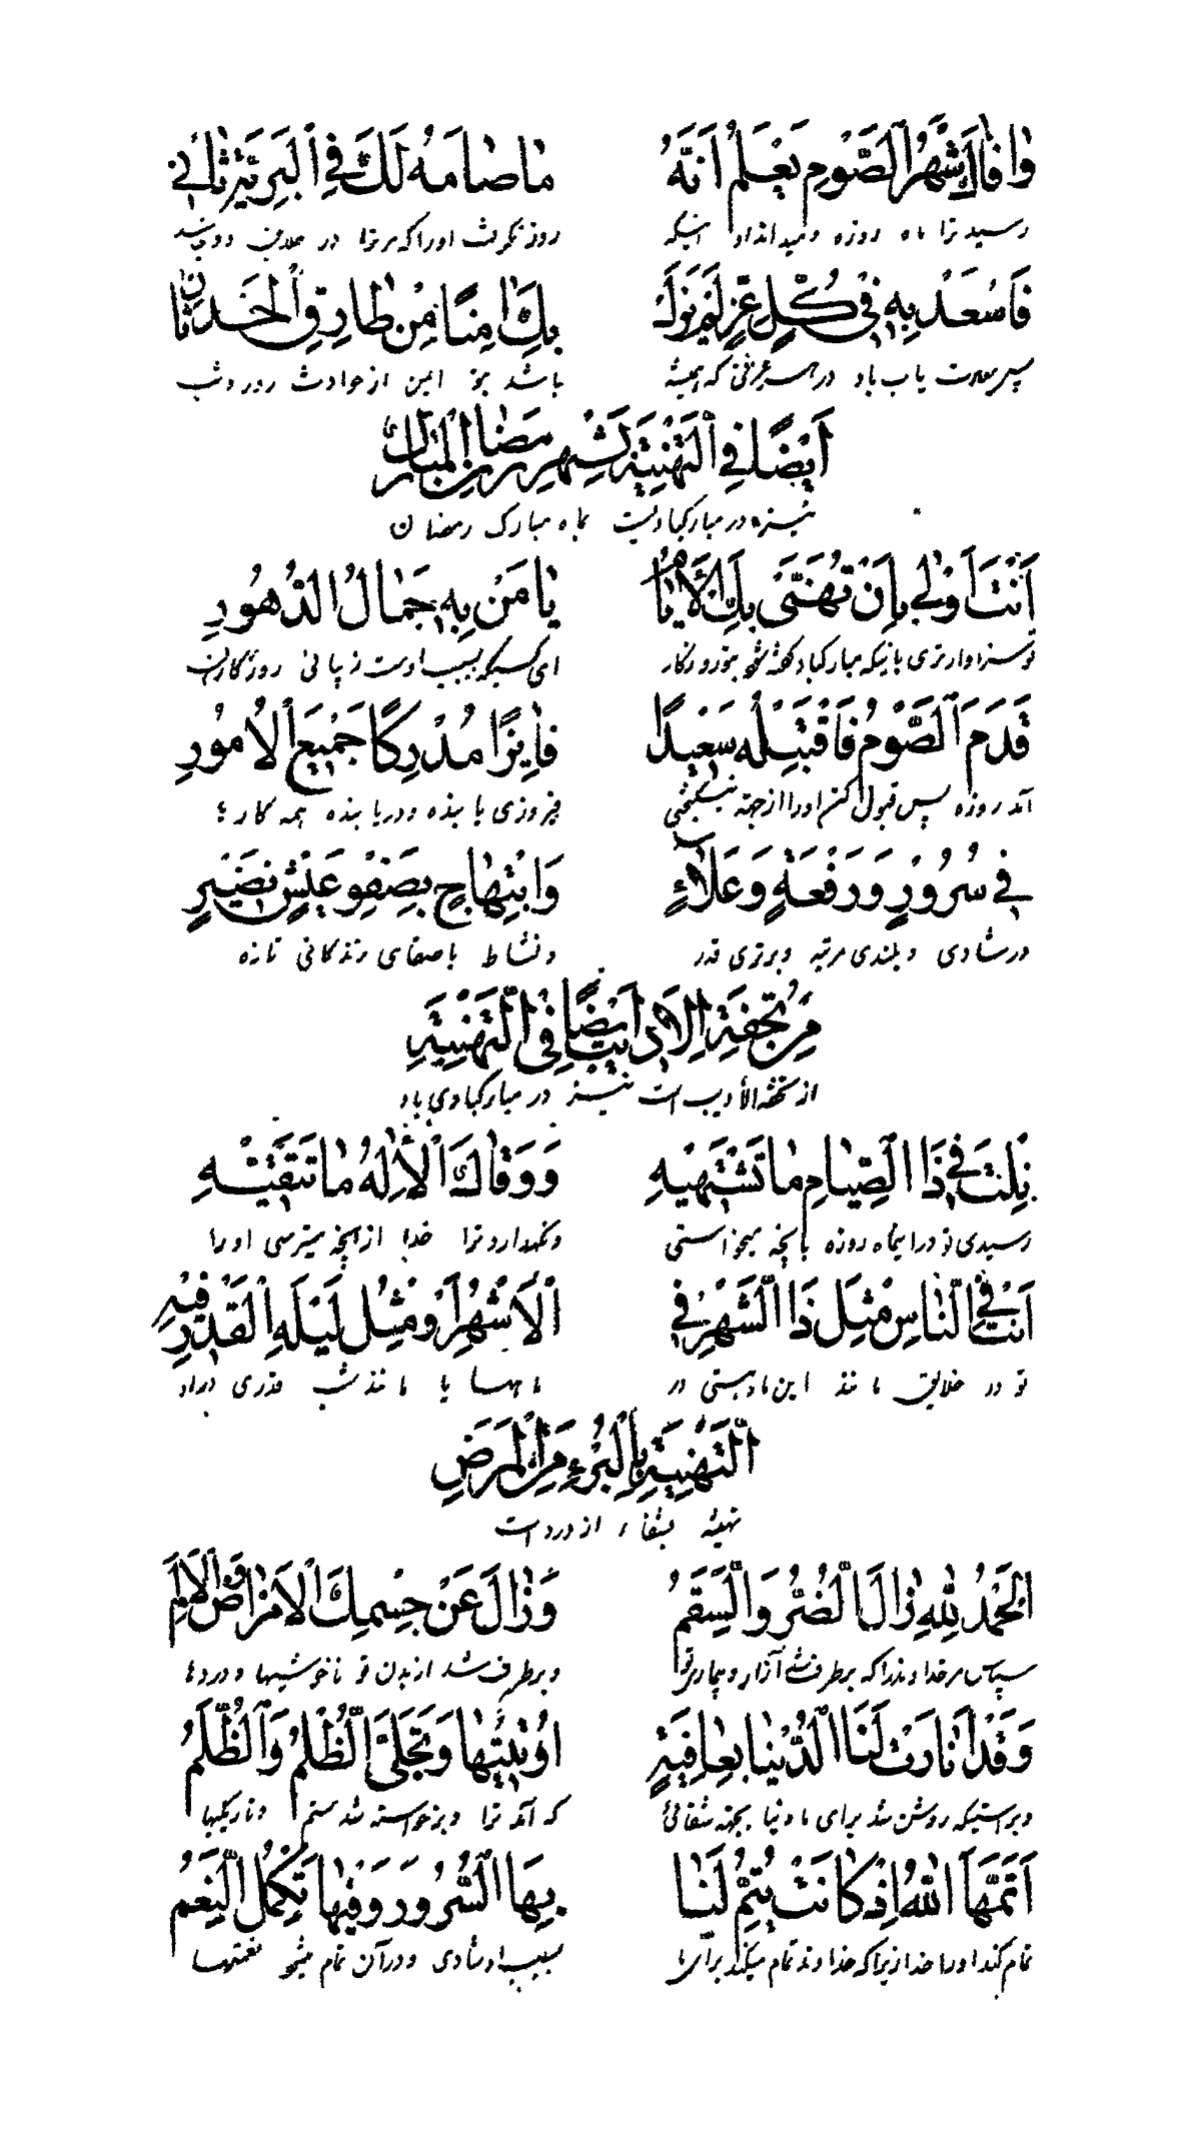 وَافَاكَ شَهْرُ الصَّوْمِ يَعْلَمُ أَنَّهُ مَا صَامَهُ لَكَ فِي الْبَرِيَّةِ ثَانِي
رسید ترا ماه روزه و میداند او اینکه روزه نگرفت او را که مر ترا در خلایق دوم
فَاسْعَدْ بِهِ فِي كُلِّ عِزٍّ لَمْ يَزَلْ بِكَ اٰمِنًا مِنْ طَارِقِ الْحَدَثَانِ
پس سعادت یاب باد در هر عزتی که همیشه باشد بتو ایمن از حوادث روز و شب
أَيْضًا فِي التَّهْنِيَةِ لِشَهْرِ رَمَضَانَ الْمُبَارَكِ
نیز در مبارکبادیست بماه مبارک رمضان
أَنْتَ أَوْلٰى بِأَنْ تُهَنّٰى بِكَ الْأَيَّامُ يَا مَنْ بِهِ جَمَالُ الدُّهُورِ
تو سزاوارتری باینکه مبارکباد گفته شود بتو روزگار ای کسیکه بسبب اوست زیبائی روزگاران
قَدَمَ الصَّوْمُ فَاقْتَبِلْهُ سَعِيدًا فَايِزًا مُدْرِكًا جَمِيعَ الْأُمُورِ
آمد روزه پس قبول کن او را از جهة نیکبختی فیروزی یابنده و دریابنده همه کارها
فِي سُرُورٍ وَرَفْعَةٍ وَعَلَاءٍ وَابْتِهَاجٍ بِصَفْوِ عَيْشٍ نَضِيرٍ
در شادی و بلندی مرتبه و برتری قدر و نشاط با صفای زندگانی تازه
مِنْ تُحْفَةِ الْأَدِيبِ أَيْضًا فِي التَّهْنِيَةِ
از تحفة الأدیب است نیز در مبارکبادی
نِلْتَ فِي ذَا الصِّيَامِ مَا تَشْتَهِيهِ وَوَقَاكَ الْإِلٰهُ مَا تَتَّقِيهِ
رسیدی تو در اینماه روزه بآنچه میخواستی و نگهدارد ترا خدا از آنچه میترسی او را
أَنْتَ فِي النَّاسِ مِثْلَ ذَا الشَّهْرِ فِي الْأَشْهُرِ أَوْ مِثْلُ لَيْلَةِ الْقَدْرِ فِيهِ
تو در خلایق مانند این ماه هستی در ماهها یا مانند شب قدری در او
التَّهْنِيَةِ بِالْبُرْءِ مِنَ الْمَرَضِ
تهنیه بشفاء از درد است
الْحَمْدُ لِلّٰهِ زَالَ الضُّرُّ وَالسَّقَمُ وَزَالَ عَنْ جِسْمِكَ الْأَمْرَاضُ وَالْأَلَمُ
سپاس مر خداوند را که برطرف شد آزار و بیماری تو و برطرف شد از بدن تو ناخوشیها و دردها
وَقَدْ أَنَارَتْ لَنَا الدُّنْيَا بِعَافِيَةٍ أُوتِيتَهَا وَتَجَلَّى الظُّلْمُ وَالظُّلَمُ
و براستیکه روشن شد برای ما دنیا بجهة شفائی که آمد ترا و برخواسته شد ستم و تاریکیها
أَتَمَّهَا اللّٰهُ إِذْ كَانَتْ يُتِمُّ لَنَا بِهَا السُّرُورَ وَفِيهَا تَكْمُلُ النِّعَمُ
تمام کند او را خدا زیرا که خداوند تمام میکند برای ما بسبب او شادی و در آن تمام میشود نعمتها